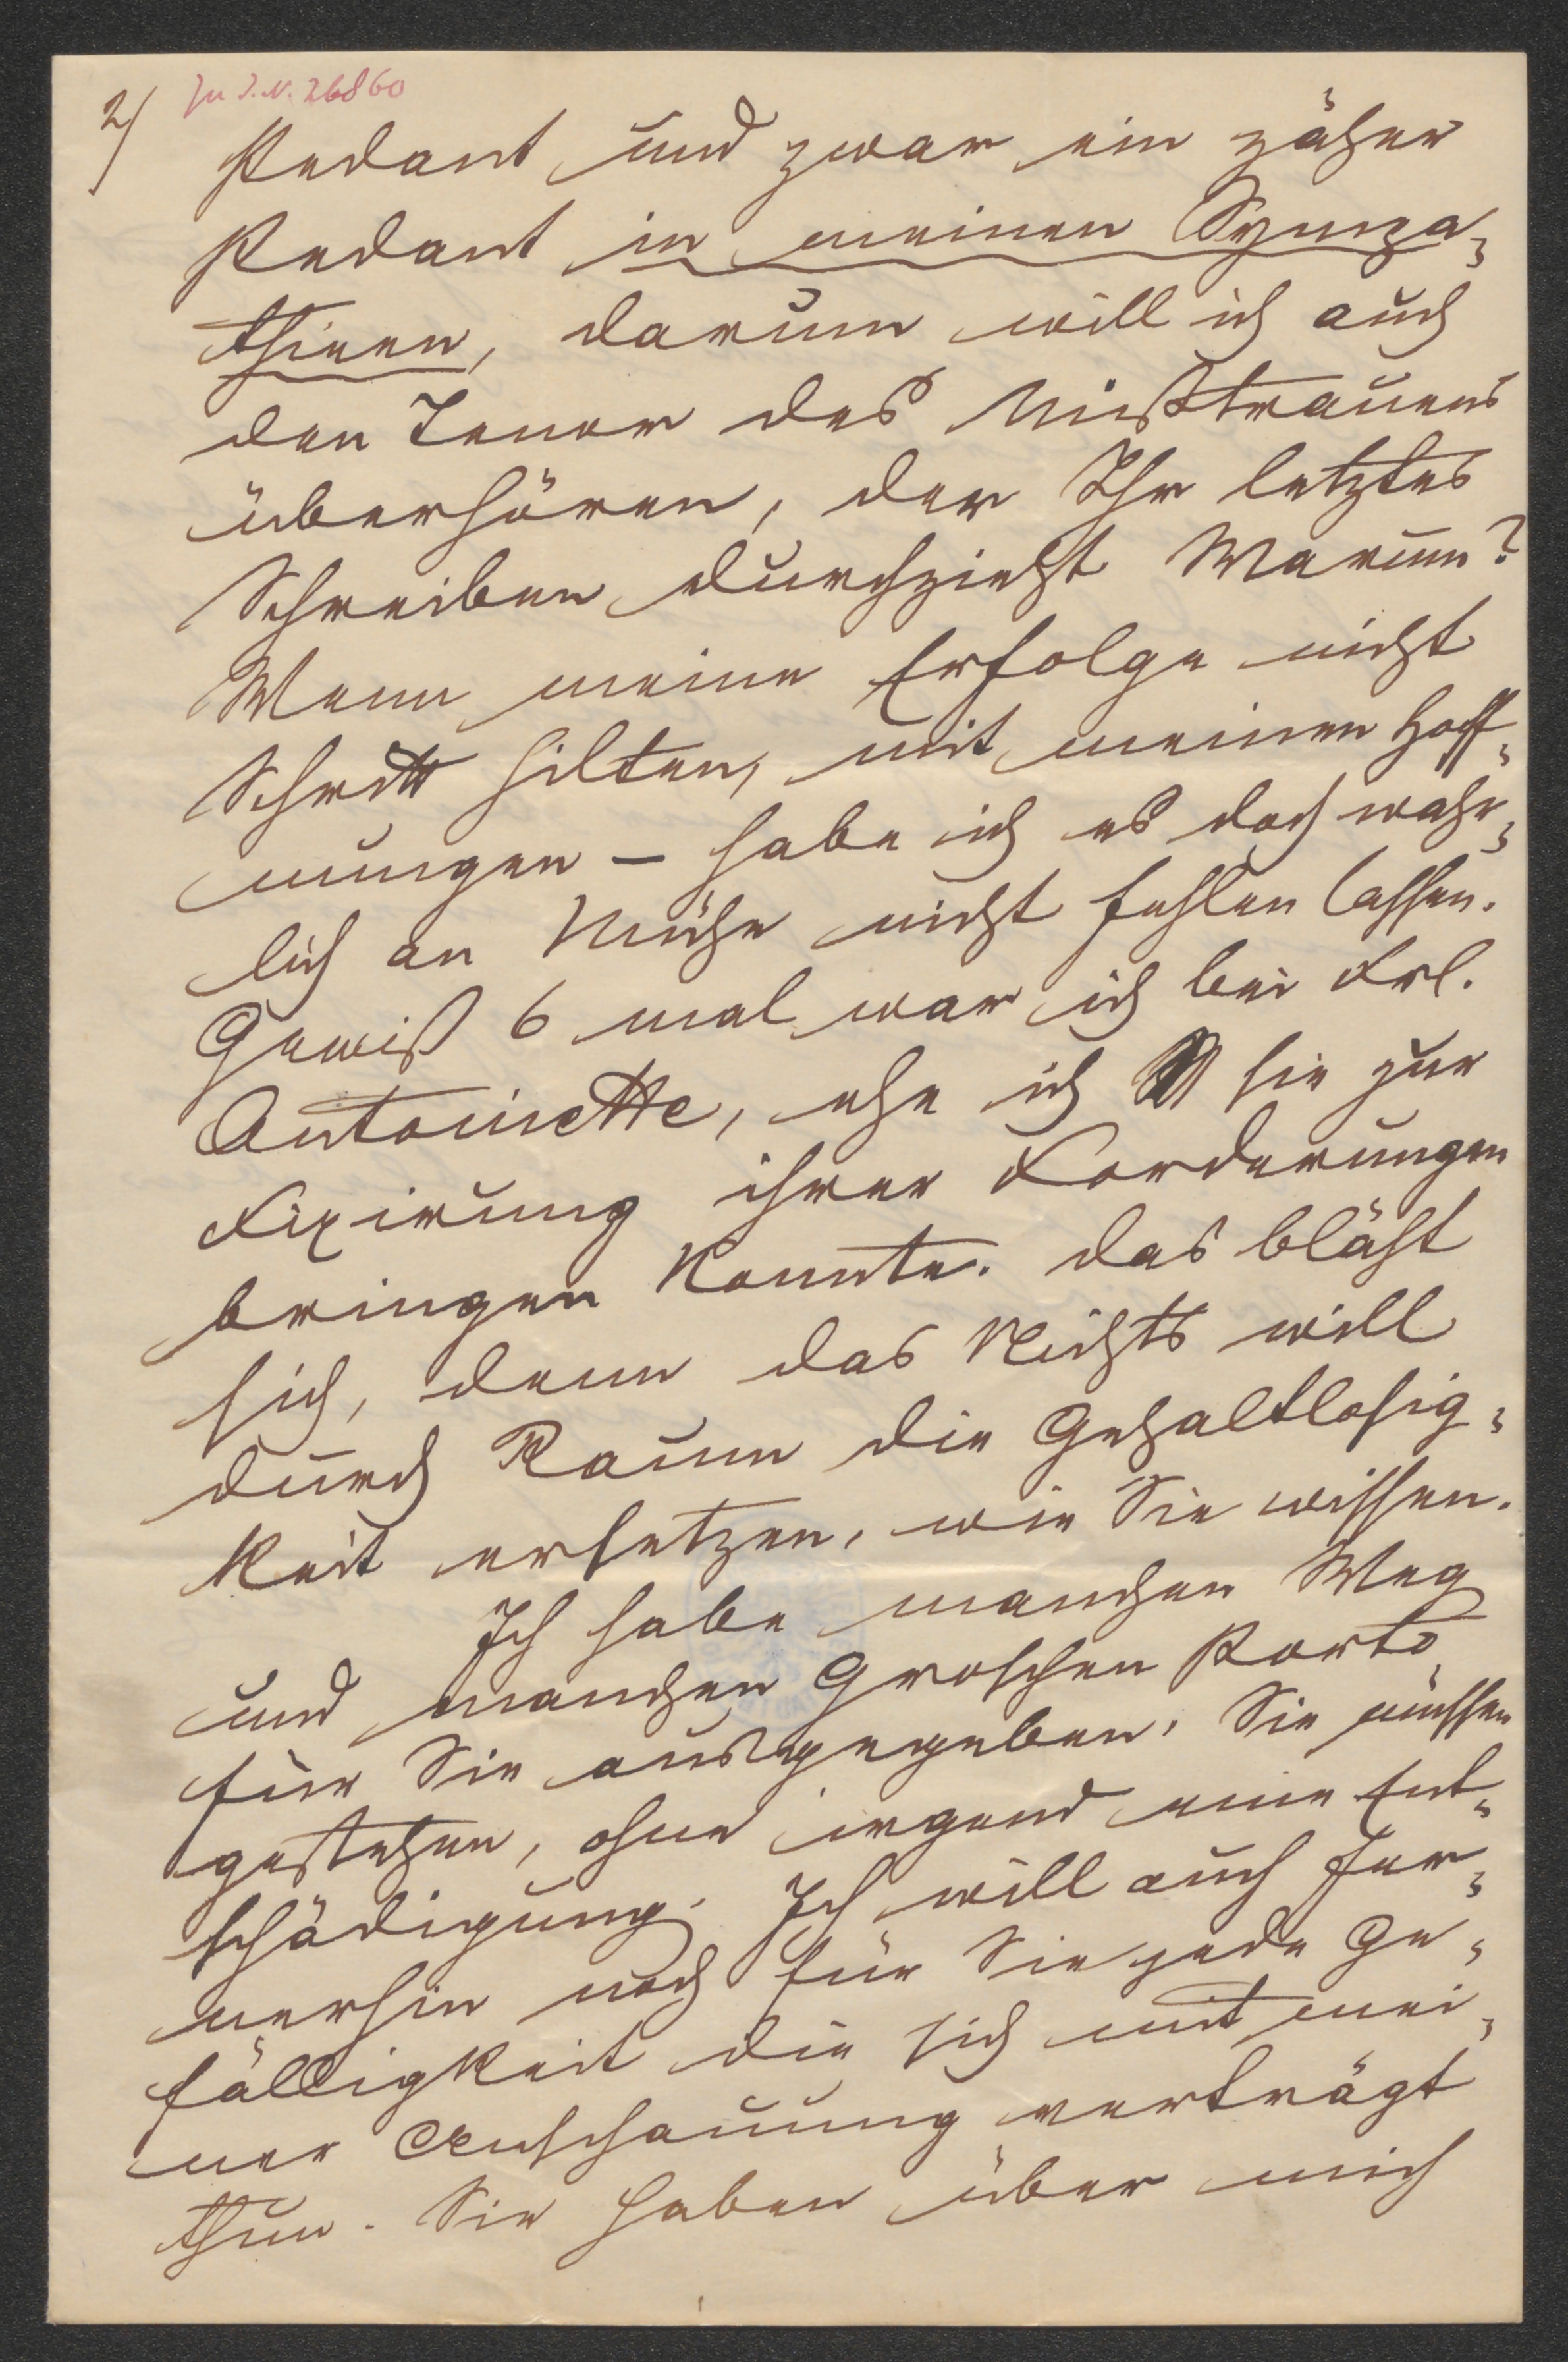 2/
Zu I.N. 26860
Pedant und zwar ein zäher
Pedant in meinen Sympa-
thieen, darum will ich auch
den Tenor des Mißtrauens
überhören, der Ihr letztes
Schreiben durchzieht Warum?
Wenn meine Erfolge nicht
Schritt hilten, mit meinen Hoff-
nungen – habe ich es doch wahr-
lich an Mühe nicht fehlen lassen.
Gewiß 6 mal war ich bei Frl.
Antoinette, ehe ich sie zur
Fixirung ihrer Forderungen
bringen konnte. das bläht
sich, denn das Nichts will
durch Raum die Gehaltlosig-
keit ersetzen, wie Sie wissen.
Ich habe manchen Weg
und manchen Groschen Porto
für Sie ausgegeben, Sie müssen
gestehen, ohne irgend eine Ent-
schädigung. Ich will auch fer-
nerhin noch für Sie jede Ge-
fälligkeit die sich mit mei-
ner Anschauung verträgt
thun. Sie haben über mich